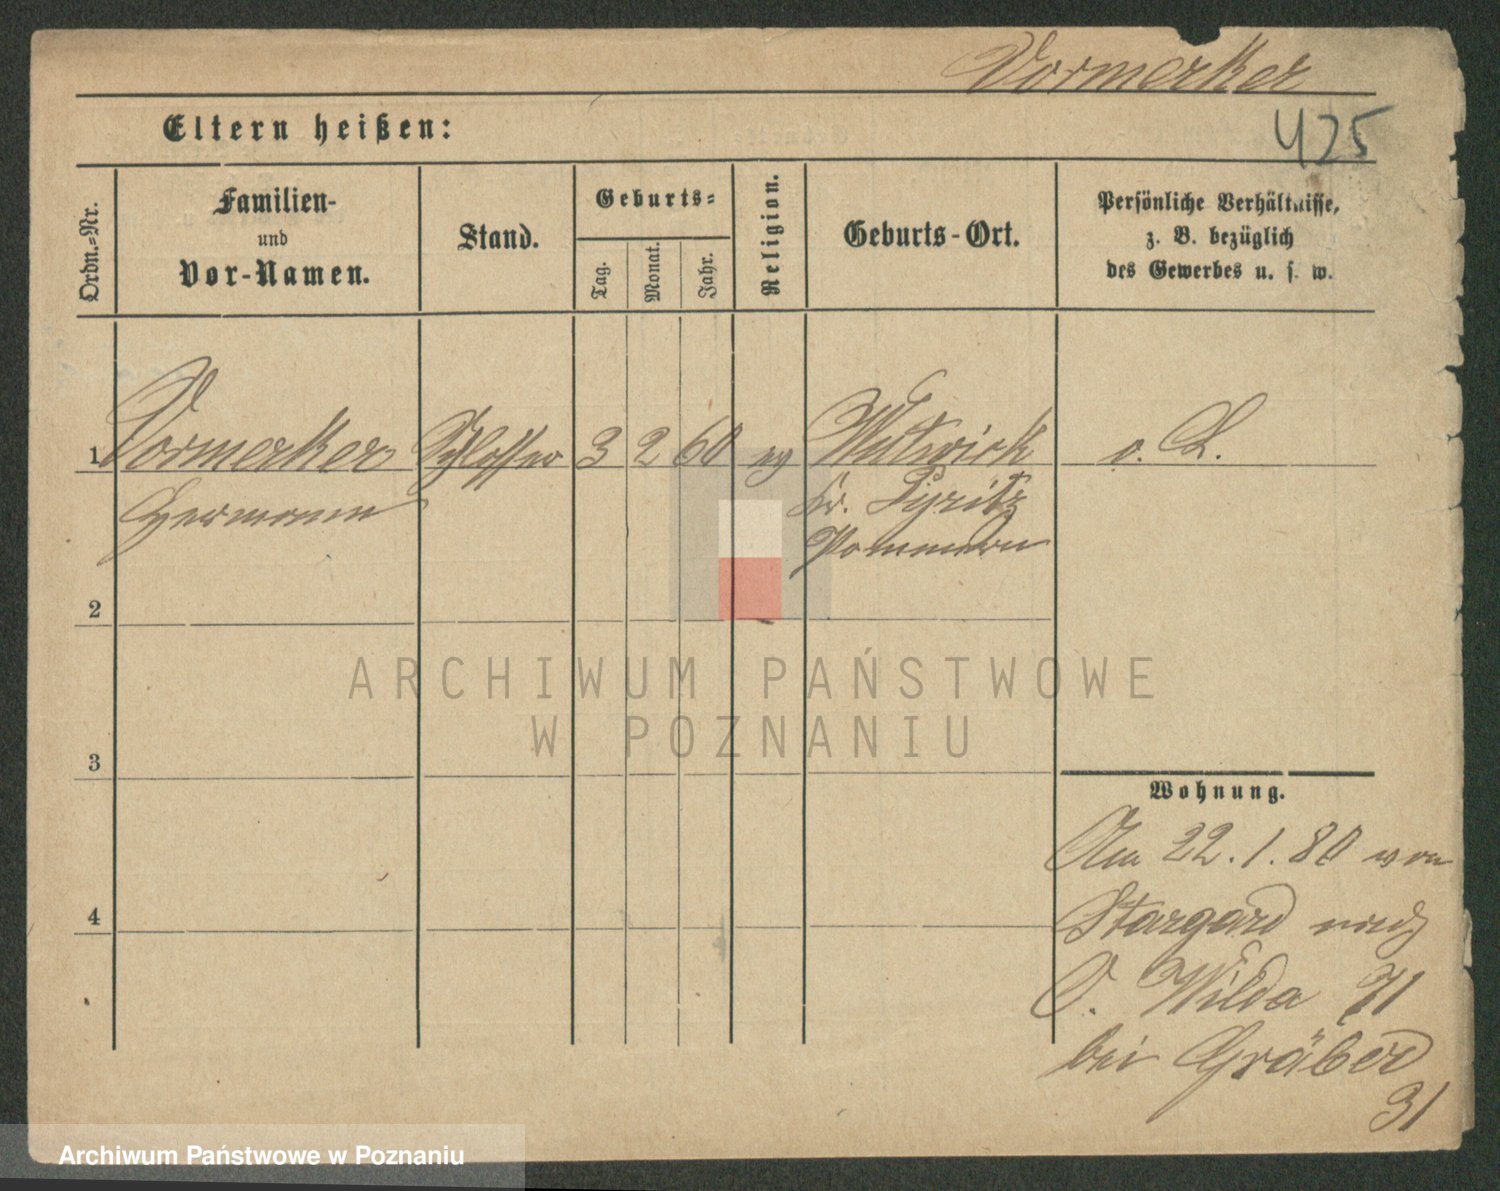 Vormerker
Eltern heißen:
425
Ordn.=Nr.
Familien-
und
Vor-Namen.
Stand.
Geburts=
Tag.
Monat.
Jahr.
Religion.
Geburts-Ort.
Persönliche Verhältnisse,
z. B. bezüglich
des Gewerbes u. s. w.
1 Vormerker Schlosser 3 2 60 ev o. L.
Hermann Kr. Pyritz
Pommern
2
3
4
Wohnung.
Am 22. 1. 80 von
Stargard nach
O. Wilda 71
bei Gräber
31
ARCHIWUM PAŃSTWOWE
W POZNANIU
Archiwum Państwowe w Poznaniu